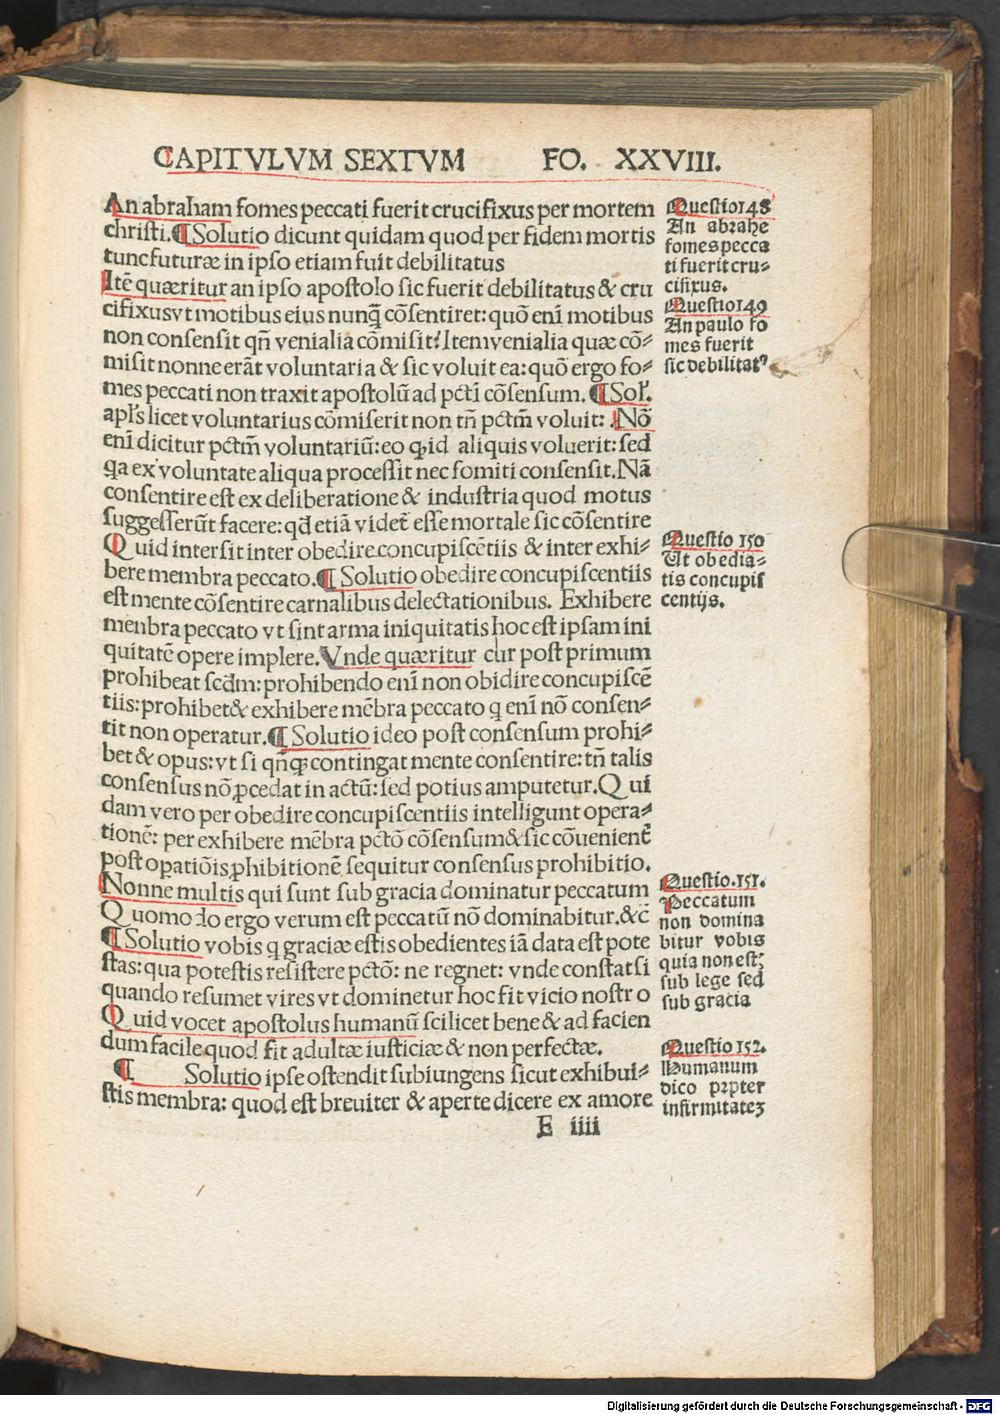 CAPITVLVM SEXTVM FO. XXVIII.
An abraham fomes peccati fuerit crucifixus per mortem
christi.¶Solutio dicunt quidam quod per fidem mortis
tuncfuturæ in ipso etiam fuit debilitatus
Itē quæritur an ipso apostolo sic fuerit debilitatus & cru
cifixusvt motibus eius nunꝗ̃ cōsentiret: quō enī motibus
non consensit qñ venialia cōmisit? Itemvenialia quæ cō⸗
misit nonne erāt voluntaria & sic voluit ea: quō ergo fo⸗
mes peccati non traxit apostolū ad pctī cōsensum. ¶Sol̛.
apl̛s licet voluntarius cōmiserit non tñ pctm̄ voluit: Nō
enī dicitur pctm̄ voluntariū: eo ꝙ id aliquis voluerit: sed
ꝗa ex voluntate aliqua processit nec fomiti consensit. Nā
consentire est ex deliberatione & industria quod motus
suggesserūt facere: qđ etiā videt᷑ esse mortale sic cōsentire
Quid intersit inter obedire concupiscētiis & inter exhi⸗
bere membra peccato.¶Solutio obedire concupiscentiis
est mente cōsentire carnalibus delectationibus. Exhibere
menbra peccato vt sint arma iniquitatis hoc est ipsam ini
quitatē opere implere. Vnde quæritur cur post primum
prohibeat scđm: prohibendo enī non obidire concupiscē
tiis: prohibet& exhibere mēbra peccato q enī nō consen⸗
tit non operatur.¶Solutio ideo post consensum prohi⸗
bet & opus: vt si qñꝙ contingat mente consentire: tñ talis
consensus nō ꝓcedat in actū: sed potius amputetur. Qui
dam vero per obedire concupiscentiis intelligunt opera⸗
tionē: per exhibere mēbra pctō cōsensum& sic cōuenient᷑
post opatiōis ꝓhibitionē sequitur consensus prohibitio.
Nonne multis qui sunt sub gracia dominatur peccatum
Quomodo ergo verum est peccatū nō dominabitur. &c̄
¶Solutio vobis q graciæ estis obedientes iā data est pote
stas: qua potestis resistere pctō: ne regnet: vnde constat si
quando resumet vires vt dominetur hoc fit vicio nostro
Quid vocet apostolus humanū scilicet bene & ad facien
dum facile quod fit adultæ iusticiæ & non perfectæ.
¶ Solutio ipse ostendit subiungens sicut exhibui⸗
stis membra: quod est breuiter & aperte dicere ex amore
E iiii
Questio148
An abrahe
fomes pecca
ti fuerit cru⸗
cifixus.
Questio149
An paulo fo
mes fuerit
sic debilitatꝰ
Questio 150
Ut obedia⸗
tis concupis
centijs.
Questio.151.
Peccatum
non domina
bitur vobis
quia non estꝭ
sub lege sed
sub gracia
Questio 152.
Humanum
dico prpter
infirmitatez
Digitalisierung gefördert durch die Deutsche Forschungsgemeinschaft - DFG